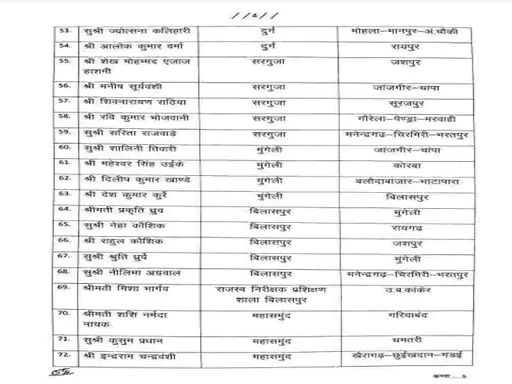 //4//
53. सुश्री ज्योत्सना कलिहारी दुर्ग मोहला–मानपुर–अं.चौकी
54. श्री आलोक कुमार वर्मा दुर्ग रायपुर
55. श्री शेख मोहम्मद एजाज हाशमी सरगुजा जशपुर
56. श्री मनीष सूर्यवंशी सरगुजा जांजगीर–चांपा
57. श्री शिवनारायण राठिया सरगुजा सूरजपुर
58. श्री रवि कुमार भोजवानी सरगुजा गौरेला–पेण्ड्रा–मरवाही
59. सुश्री सरिता राजवाडे सरगुजा मनेन्द्रगढ़–चिरमिरी–भरतपुर
60. सुश्री शालिनी तिवारी मुंगेली जांजगीर–चांपा
61. श्री महेश्वर सिंह उईके मुंगेली कोरबा
62. श्री दिलीप कुमार खाण्डे मुंगेली बलौदाबाजार–भाटापारा
63. श्री देश कुमार कुर्रे मुंगेली बिलासपुर
64. श्रीमती प्रकृति ध्रुव बिलासपुर मुंगेली
65. सुश्री नेहा कौशिक बिलासपुर रायगढ़
66. श्री राहुल कौशिक बिलासपुर जशपुर
67. सुश्री श्रुति धुर्वे बिलासपुर मुंगेली
68. सुश्री नीलिमा अग्रवाल बिलासपुर मनेन्द्रगढ़–चिरमिरी–भरतपुर
69. श्रीमती मिशा भार्गव राजस्व निरीक्षक प्रशिक्षण शाला बिलासपुर उ.ब.कांकेर
70. श्रीमती शशि नर्मदा नायक महासमुंद गरियाबंद
71. सुश्री कुसुम प्रधान महासमुंद धमतरी
72. श्री इन्द्रराम चन्द्रवंशी महासमुंद खैरागढ़–छुईखदान–गंडई
क्रमशः....5